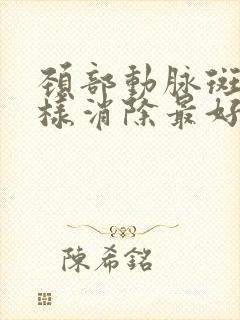 頸部動脉斑
樣消除最好
陳希銘